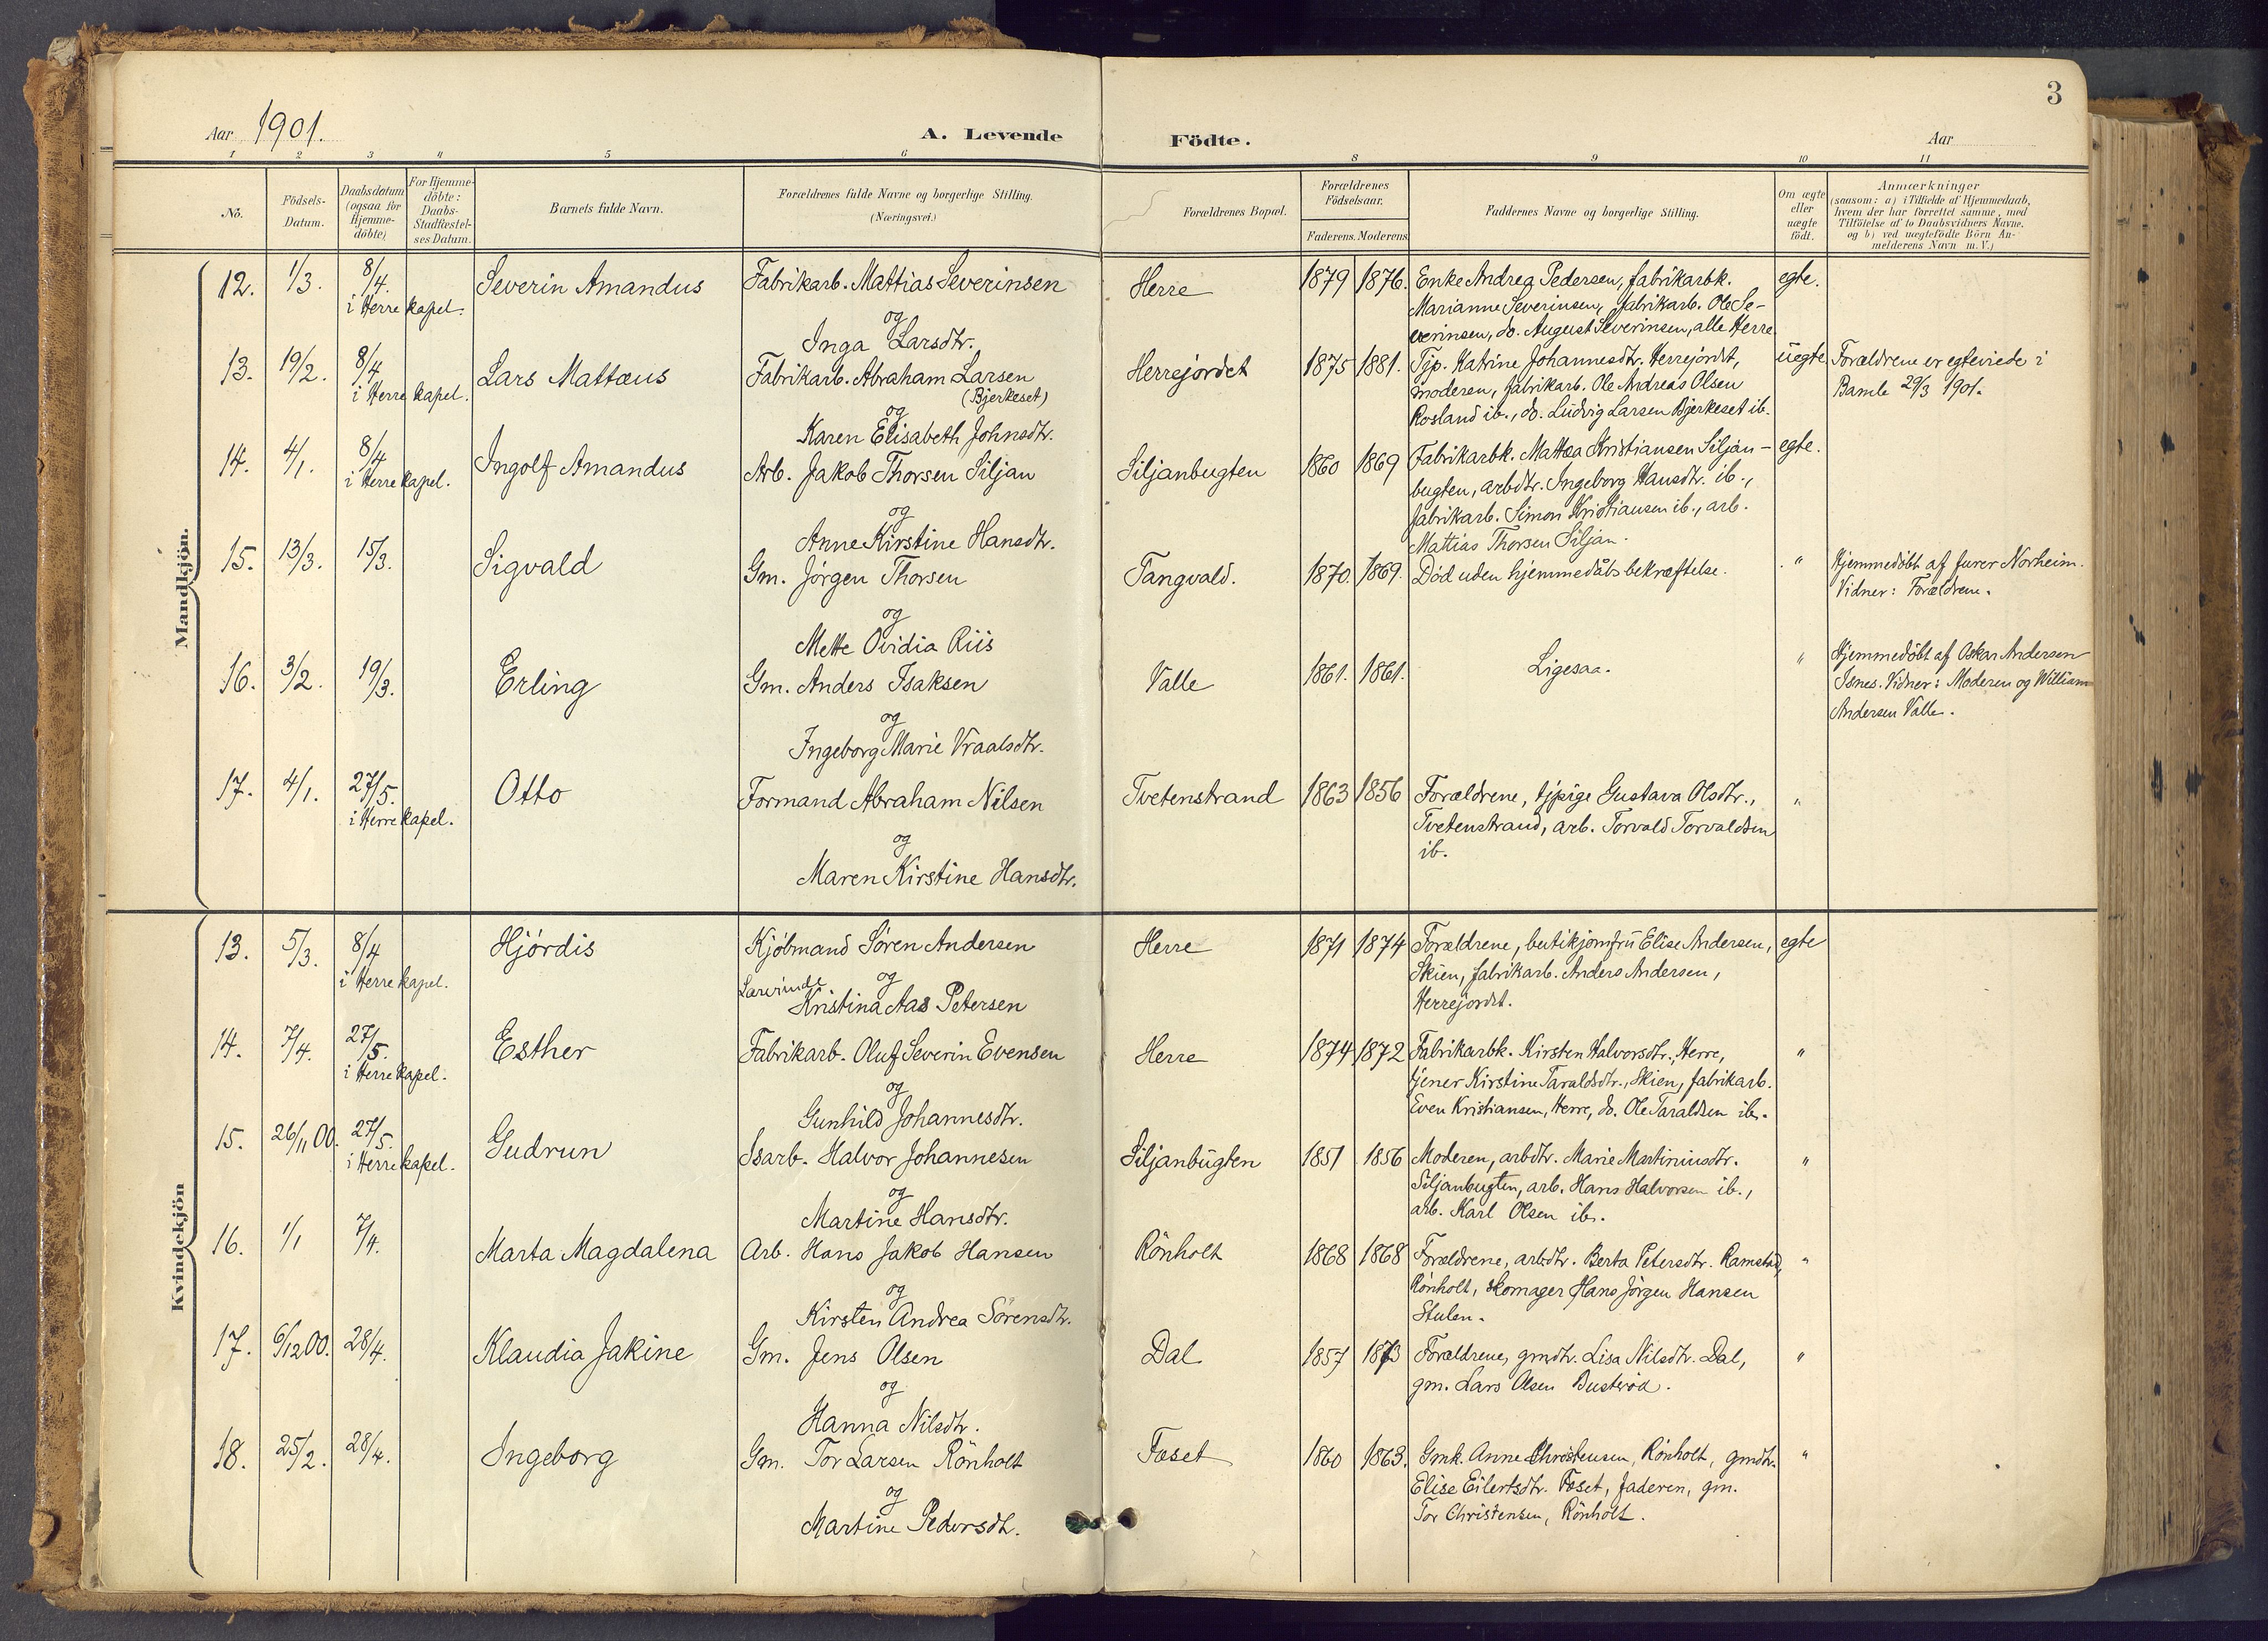 3
Aar 1901.
A. Levende Födte.
Aar
1 2 3 4 5 6 8 9 10 11
No.
Födsels-Datum.
Daabsdatum (ogsaa for Hjemme-döbte)
For Hjemme-döbte: Daabs-Stadfæstel-ses Datum.
Barnets fulde Navn.
Forældrenes fulde Navne og borgerlige Stilling. (Næringsvei.)
Forældrenes Bopæl.
Forældrenes Födselsaar.
Faderens. Moderens.
Faddernes Navne og borgerlige Stilling.
Om ægte eller uægte födt.
Anmærkninger
(saasom: a) i Tilfælde af Hjemmedaab,
hvem der har forrettet samme, med
Tilföielse af to Daabsvidners Navne,
og b) ved uægtefödte Börn An-
melderens Navn m. V.)
Mandkjön.
12. 1/3. 8/4. i Herre kapel. Severin Amandus
Fabrikarb. Mattias Severinsen
og
Inga Larsdtr.
Herre 1879 1876.
Enke Andrea Pedersen, fabrikarbk.
Marianne Severinsen, fabrikarb. Ole Se-
verinsen, do. August Severinsen, alle Herre.
egte.
13. 19/2. 8/4 i Herre kapel. Lars Mattæus
Fabrikarb. Abraham Larsen
(Bjerkeset)
og
Karen Elisabeth Johnsdtr.
Herrejordet 1875 1881.
Tjp. Katrine Johannesdtr. Herrejordet,
moderen, fabrikarb. Ole Andreas Olsen
Rosland ib., do. Ludvig Larsen Bjerkeset ib.
uegte.
Forældrene er egteviede i
Bamle 29/3 1901.
14. 4/1. 8/4 i Herre kapel. Ingolf Amandus
Arb. Jakob Thorsen Siljan
og
Anne Kirstine Hansdtr.
Siljanbugten 1860 1869
Fabrikarbk. Mattea Kristiansen Siljan-
bugten, arbdtr. Ingeborg Hansdtr. ib.,
fabrikarb. Simon Kristiansen ib., arb.
Mattias Thorsen Siljan.
egte.
15. 13/3. 15/3. Sigvald
Gm. Jörgen Thorsen
og
Mette Ovidia Riis
Tangvald. 1870. 1869.
Död uden hjemmedåbsbekræftelse.
"
Hjemmedöbt af furer Norheim.
Vidner: Forældrene.
16. 3/2. 19/3. Erling
Gm. Anders Isaksen
og
Ingeborg Marie Vraalsdtr.
Valle 1861. 1861.
Ligesaa.
"
Hjemmedöbt af Oskar Andersen
Isnes. Vidner: Moderen og William
Andersen Valle.
17. 4/1. 27/5. i Herre kapel. Otto
Formand Abraham Nilsen
og
Maren Kirstine Hansdtr.
Tvetenstrand 1863 1856
Forældrene, tjpige Gustava Olsdtr.,
Tvetenstrand, arb. Torvald Torvaldsen
ib.
"
Kvindekjön
13. 5/3. 8/4 i Herre kapel. Hjördis
Kjöbmand Sören Andersen
og
Kristina Aas Petersen
Herre 1871 1874
Forældrene, butikjomfru Elise Andersen,
Skien, fabrikarb. Anders Andersen,
Herrejordet.
egte
14. 7/4. 27/5. i Herre kapel. Esther
Fabrikarb. Oluf Severin Evensen
og
Gunhild Johannesdtr.
Herre 1874 1872
Fabrikarbk. Kirsten Halvorsdtr., Herre,
tjener Kirstine Taraldsdtr., Skien, fabrikarb.
Even Kristiansen, Herre, do. Ole Taraldsen ib.
"
15. 26/11 00. 27/5. i Herre kapel. Gudrun
Isarb. Halvor Johannesen
og
Martine Hansdtr.
Siljanbugten 1851 1856
Moderen, arbdtr. Marie Martiniusdtr.
Siljanbugten, arb. Hans Halvorsen ib.,
arb. Karl Olsen ib.
"
16. 1/1 7/4. Marta Magdalena
Arb. Hans Jakob Hansen
og
Kirsten Andrea Sörensdtr.
Rönholt 1868 1868
Forældrene, arbdtr. Berta Petersdtr. Ramstad,
Rönholt, skomager Hans Jörgen Hansen
Stulen.
"
17. 6/12 00. 28/4. Klaudia Jakine
Gm. Jens Olsen
og
Hanna Nilsdtr.
Dal 1857 1873
Forældrene, gmdtr. Lisa Nilsdtr. Dal,
gm. Lars Olsen Busteröd.
"
18. 25/2. 28/4. Ingeborg
Gm. Tor Larsen Rönholt
og
Martine Pedersdt.
Foset 1860 1863.
Gmk. Anne Christensen, Rönholt, gmdtr.
Elise Eilertsdtr. Foset, faderen, gm.
Tor Christensen, Rönholt.
"